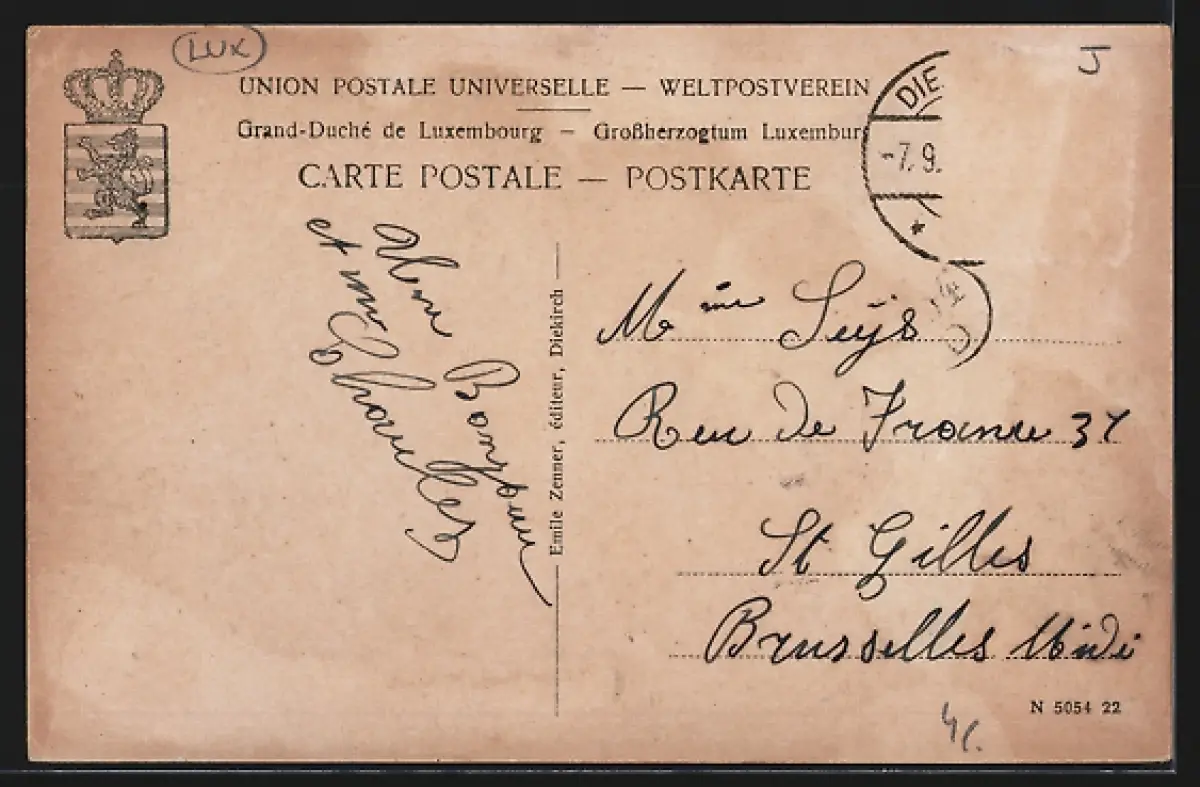 LUX
J
UNION POSTALE UNIVERSELLE — WELTPOSTVEREIN
Grand-Duché de Luxembourg — Großherzogtum Luxemburg
CARTE POSTALE — POSTKARTE
DIE
-7.9.
Bonjour
et
Emile Zenner, éditeur, Diekirch
Mme Seÿs
Rue de France 37
St Gilles
Brusselles Midi
N 5054 22